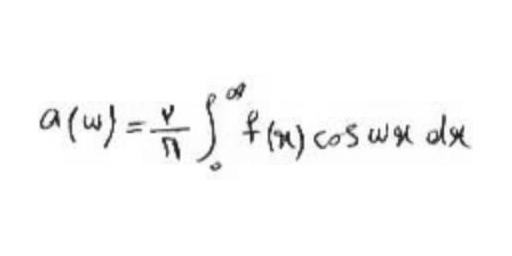 a(w) = ۲/π ∫₀^∞ f(x) cos wx dx